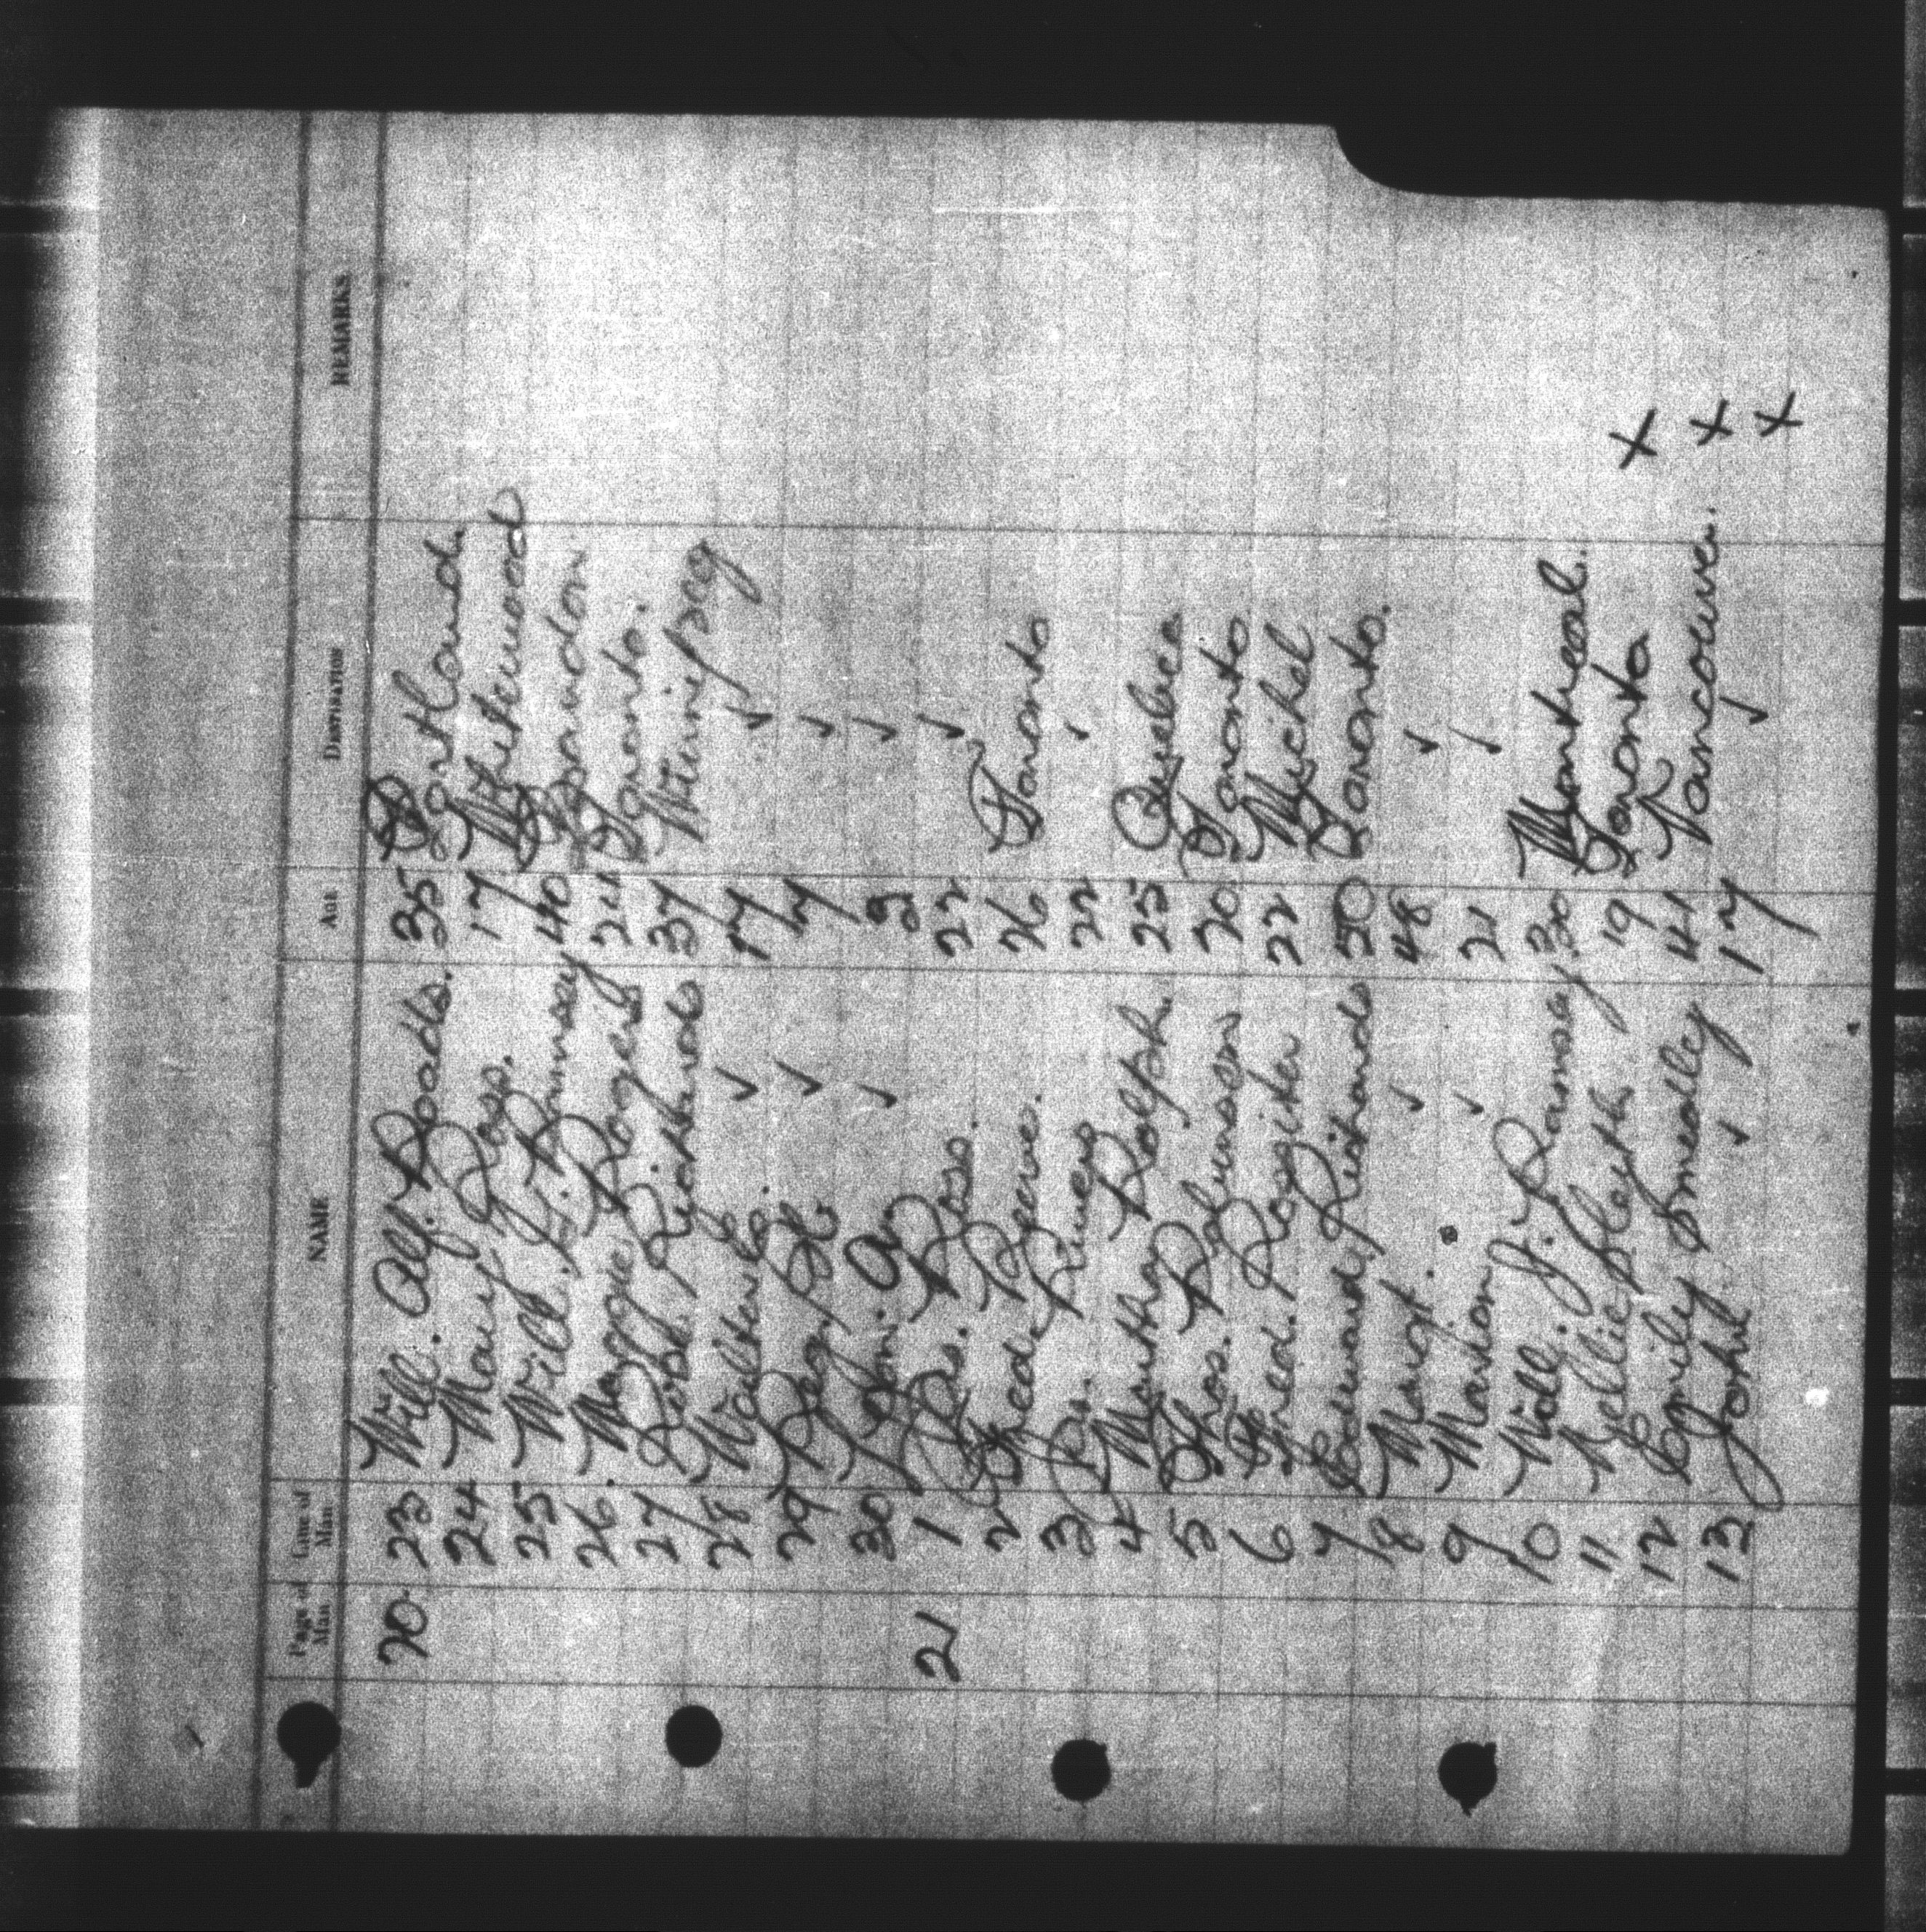 Page of Man Line of Man NAME AGE DESTINATION REMARKS
20 23 Will. Alf. Roads. 35 Portland.
24 Mary Ross. 17 Whitewood
25 Will. H. Rumsay 40 Brandon
26 Maggie Rogers 24 Toronto.
27 Robt. Richards 37 Winnipeg
28 Walter G. ✓ 17 ✓
29 Reg. H. ✓ 7 ✓
30 ✓ 3 ✓
21 1 Ross. 22 ✓
2 Fred. Reeve. 26 Toronto
3 Rivers 22 ✓
4 Martha Rolph. 25 Quebec
5 Thos. Robinson 20 Toronto
6 Fred. Rogiter 22 Michel
7 Edward Richards 50 Toronto.
8 Margt. ✓ 48 ✓
9 Marion ✓ 21 ✓
10 Will. J. Ramsay 30 Montreal.
11 Nellie Sleath 19 Toronto X
12 Emily Smedley 41 Vancouver. X
13 John ✓ 17 ✓ X